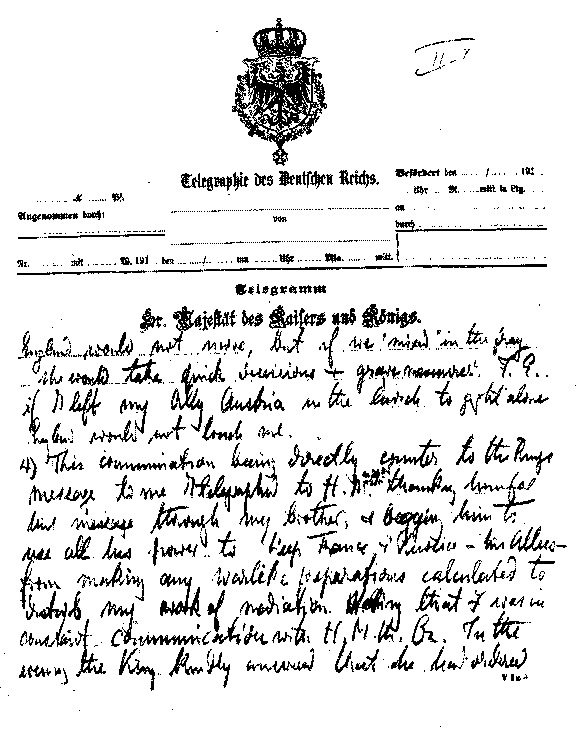 II-7
Telegraphie des Deutschen Reichs.
Befördert den / 191
Uhr M. mitt in Ltg.
an
durch
Angenommen durch:
von
Nr. mit W. 191 den / um Uhr Min. mitt.
Telegramm
Sr. Majestät des Kaisers und Königs.
England would not move, but if we 'mixed' in the fray
she would take quick decisions + grave measures. I.E.
if I left my Ally Austria in the lurch to fight alone
England would not touch me.
4) This communication being directly counter to the Kings
message to me I telegraphed to H.M. thanking him for
his message through my brother, & begging him to
use all his power to keep France & Russia – his Allies –
from making any warlike preparations calculated to
disturb my work of mediation stating that I was in
constant communication with H.M. the Cz. In the
evening the King kindly answered that he had ordered